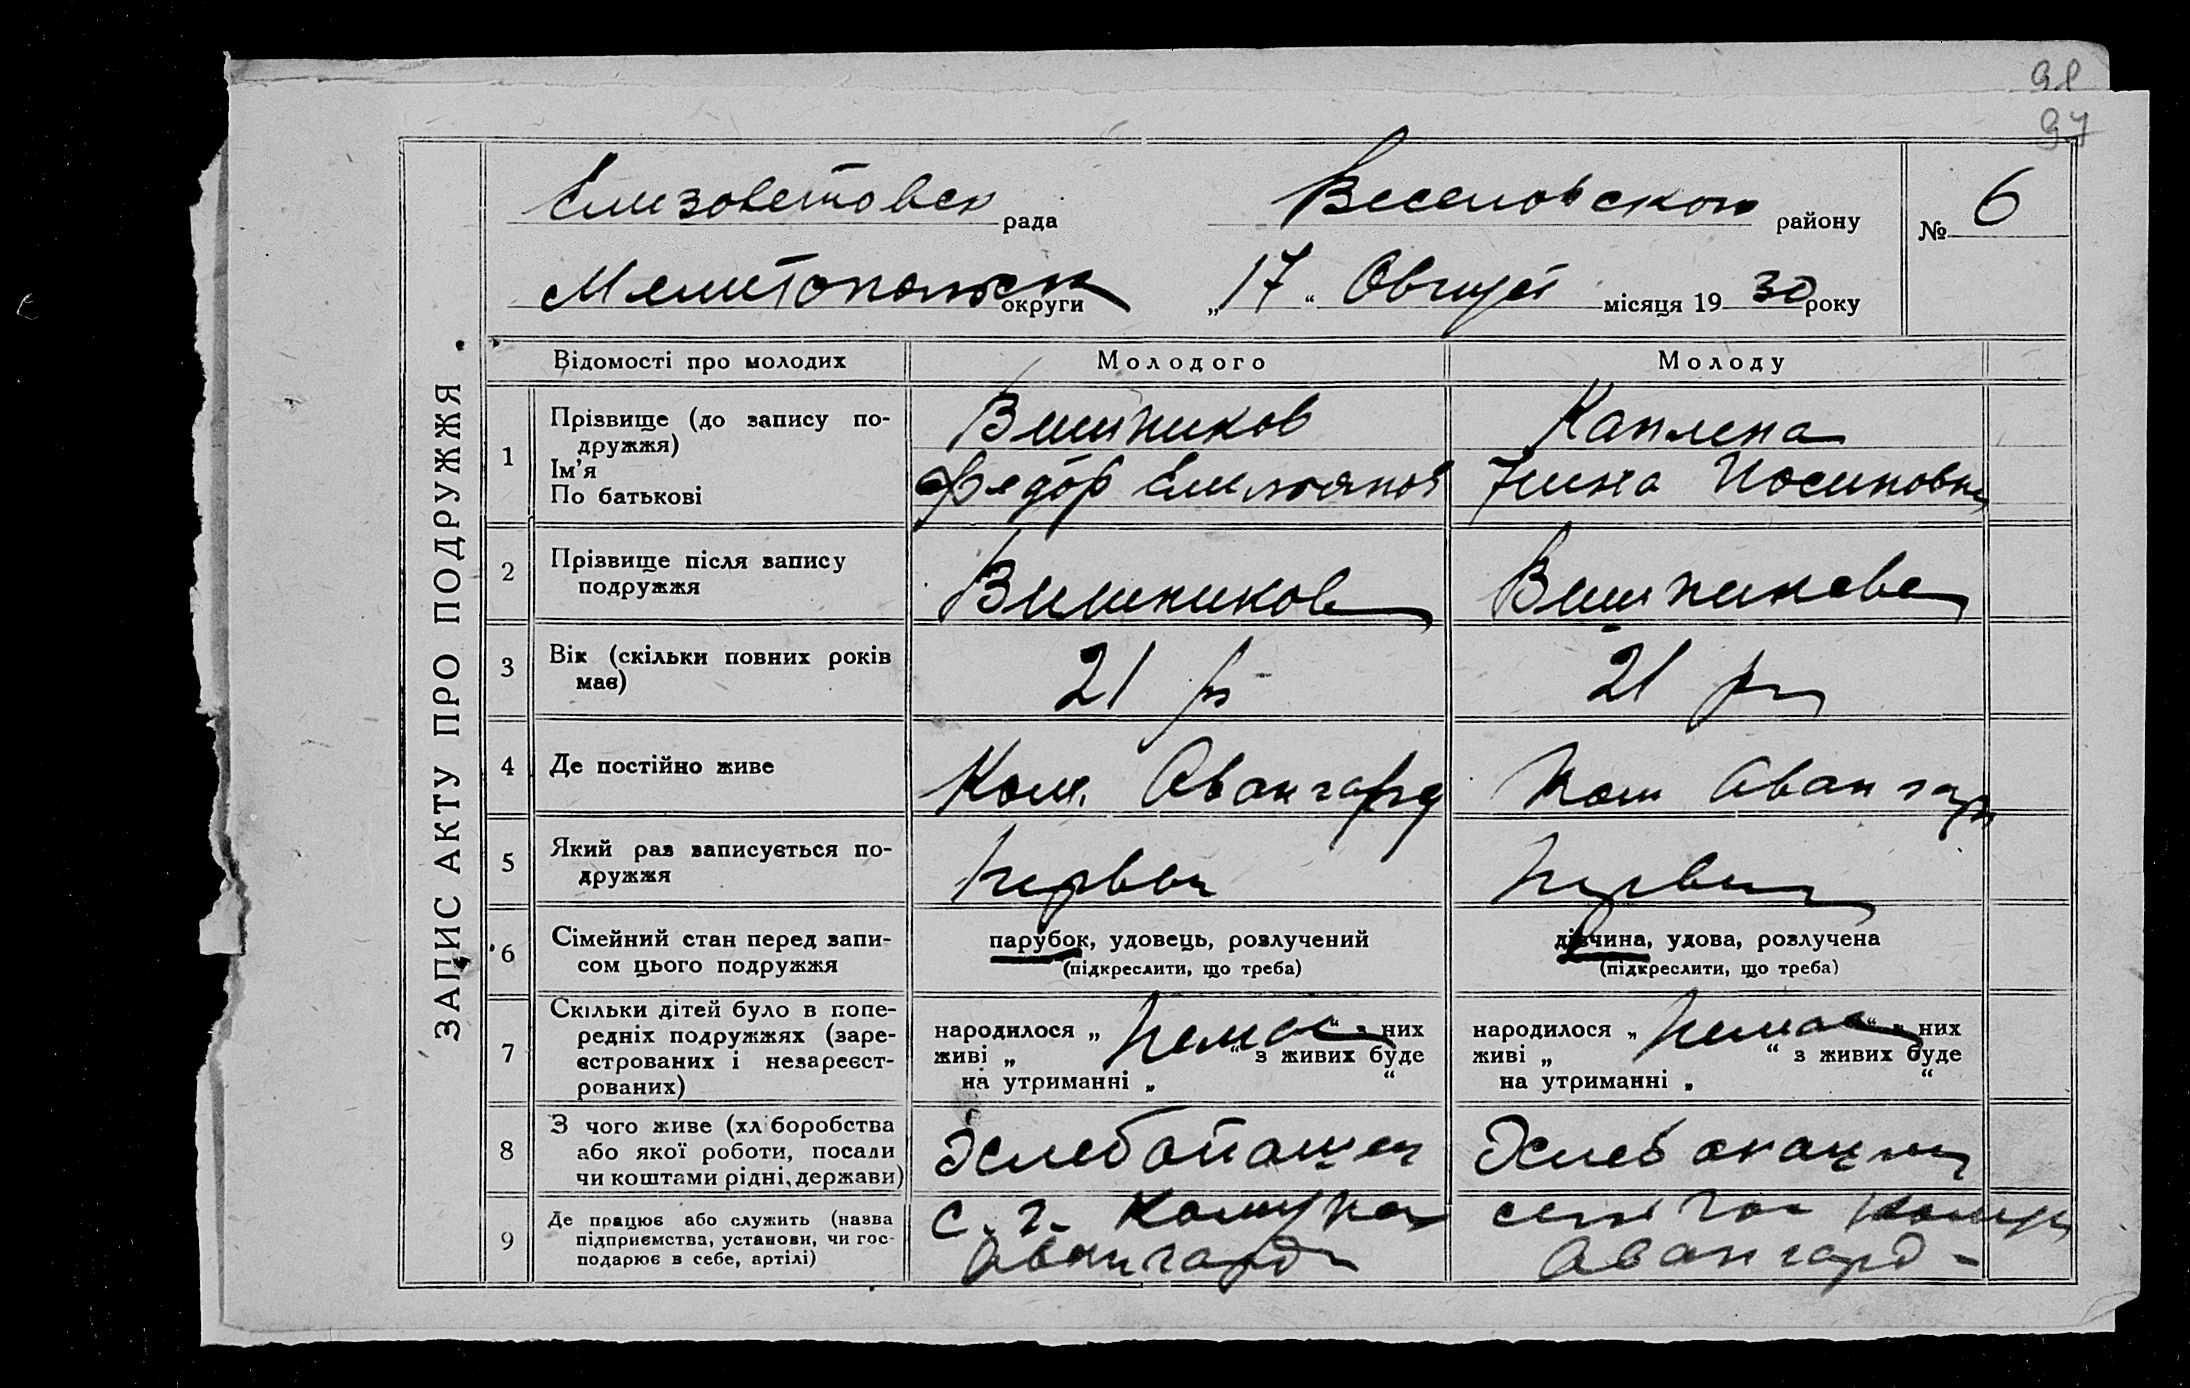 98
97
ЗАПИС АКТУ ПРО ПОДРУЖЖЯ
Елизоветовск рада Веселовского району № 6
Мелитопольск округи „17“ Овгуст місяця 1930 року
Відомості про молодих Молодого Молоду
1 Прізвище (до запису по-
дружжя)
Ім’я
По батькові
Вишников
Федор Емельянов
Каплена
Нина Иосиповна
2 Прізвище після запису
подружжя
Вишников
Вишникова
3 Вік (скільки повних років
має)
21
21
4 Де постійно живе
Ком. Авангард
Ком Авангард
5 Який раз записується по-
дружжя
Первый
Первый
6 Сімейний стан перед запи-
сом цього подружжя
парубок, удовець, розлучений
(підкреслити, що треба)
дівчина, удова, розлучена
(підкреслити, що треба)
7 Скільки дітей було в попе-
редніх подружжях (заре-
єстрованих і незареєст-
рованих)
народилося „ Немає “ з них
живі „ “ з живих буде
на утриманні „ “
народилося „ Немає “ з них
живі „ “ з живих буде
на утриманні „ “
8 З чого живе (хліборобства
або якої роботи, посади
чи коштами рідні, держави)
Хлебопашец
Хлебопашец
9 Де працює або служить (назва
підприємства, установи, чи гос-
подарює в себе, артілі)
с. г. Комуна
Авангард
Авангард